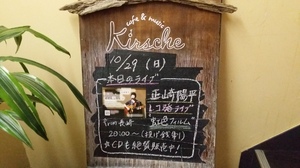 cafe & music
Kirsche
10/29(日)
本日のライブ
正崎陽平
レコ発ライブ
虹色フィルム
20:00〜(投げ銭制)
☆CDも絶賛販売中!